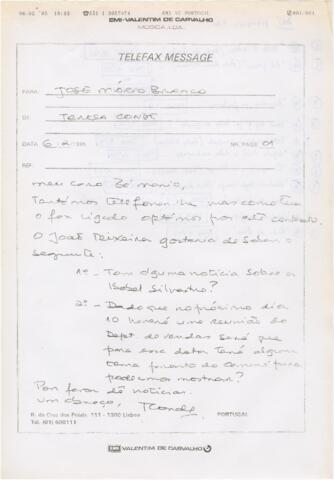 06-02 '95 18:03 351 1 8687074 EMI VC PORTUGAL 001/001
EMI-VALENTIM DE CARVALHO
MÚSICA, LDA.
TELEFAX MESSAGE
PARA: JOSÉ MÁRIO BRANCO
DE: TERESA CONDE
DATA 6.2.1995 Nº. PAGS 01
REF:
meu caro Zé Mário,
Tentámos telefonar-lhe mas como tem
o fax ligado optámos por este
O João Teixeira gostaria de saber o
seguinte:
1º - Tem alguma notícia sobre a
Isabel Silvestre?
2º - Dado que no próximo dia
10 haverá uma reunião do
Dept. de vendas será que
para essa data terá algum
tema pronto do para
podermos mostrar?
Por favor dê notícias.
Um abraço, TConde
R. da Cruz dos Poiais, 111 - 1200 Lisboa PORTUGAL
Tel. (01) 600111
EMI VALENTIM DE CARVALHO